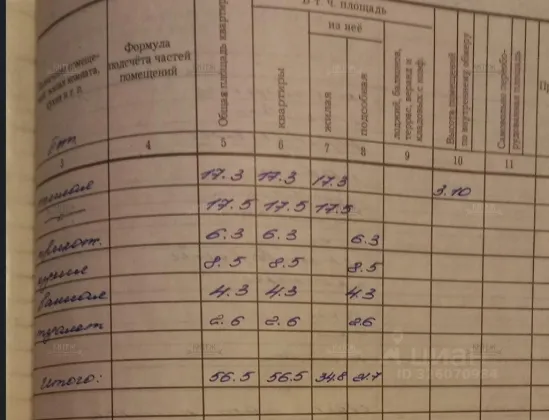 В т. ч. площадь
из неё
Формула
подсчёта частей
помещений
Общая площадь квартиры
квартиры
жилая
подсобная
лоджий, балконов,
террас, веранд и
кладовых с коэф.
Высота помещений
по внутреннему обмеру
Самовольно переобо-
рудованная площадь
1 4 5 6 7 8 9 10 11
жилая 17.3 17.3 17.3 3.10
17.5 17.5 17.5
6.3 6.3 6.3
кухня 8.5 8.5 8.5
ванная 4.3 4.3 4.3
туалет 2.6 2.6 2.6
Итого: 56.5 56.5 34.8 21.7
циан
ID 326070954